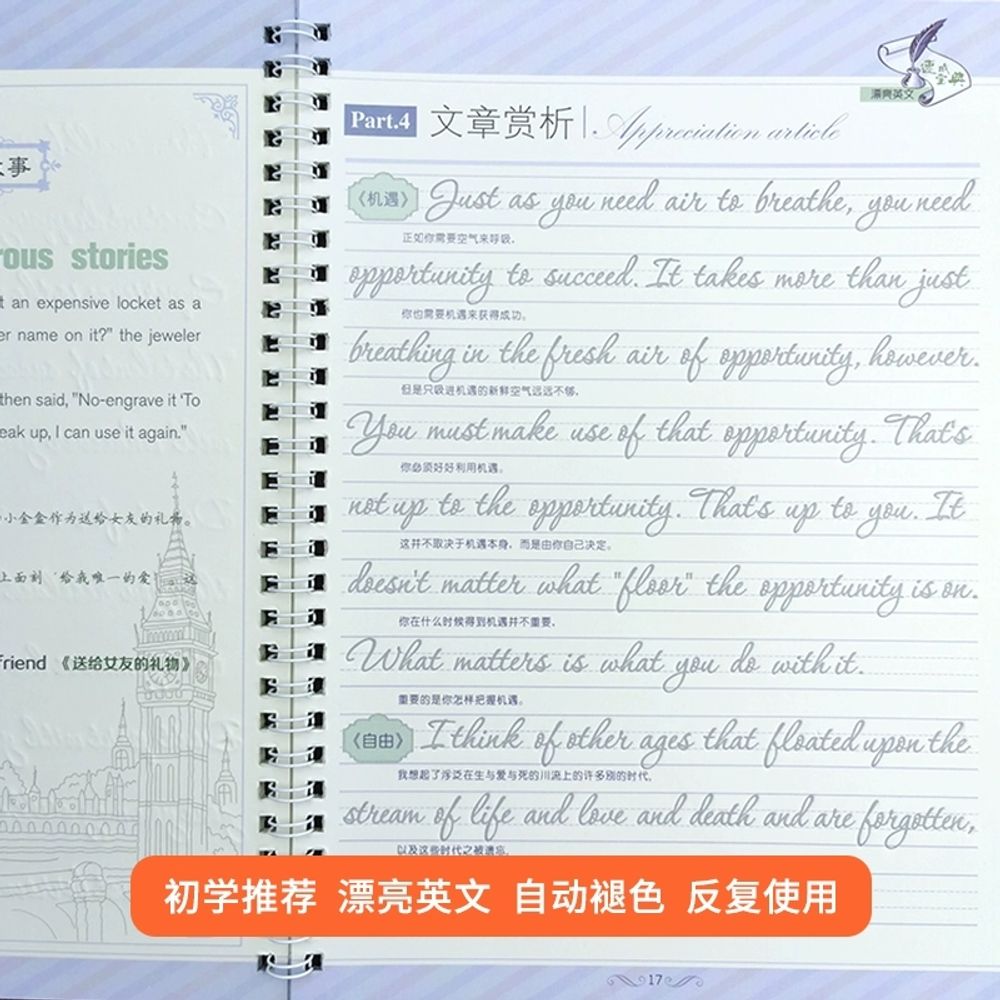 事
rous stories
t an expensive locket as a
er name on it?" the jeweler
then said, "No-engrave it 'To
eak up, I can use it again."
小金盒作为送给女友的礼物。
上面刻‘给我唯一的爱 这
friend 《送给女友的礼物》
速成宝典
漂亮英文
Part.4 文章赏析 Appreciation article
《机遇》 Just as you need air to breathe, you need
正如你需要空气来呼吸,
opportunity to succeed. It takes more than just
你也需要机遇来获得成功。
breathing in the fresh air of opportunity, however.
但是只吸进机遇的新鲜空气远远不够,
You must make use of that opportunity. That's
你必须好好利用机遇。
not up to the opportunity. That's up to you. It
这并不取决于机遇本身, 而是由你自己决定。
doesn't matter what "floor" the opportunity is on.
你在什么时候得到机遇并不重要,
What matters is what you do with it.
重要的是你怎样把握机遇。
《自由》 I think of other ages that floated upon the
我想起了浮泛在生与爱与死的川流上的许多别的时代,
stream of life and love and death and are forgotten,
以及这些时代之被遗忘,
初学推荐 漂亮英文 自动褪色 反复使用
17